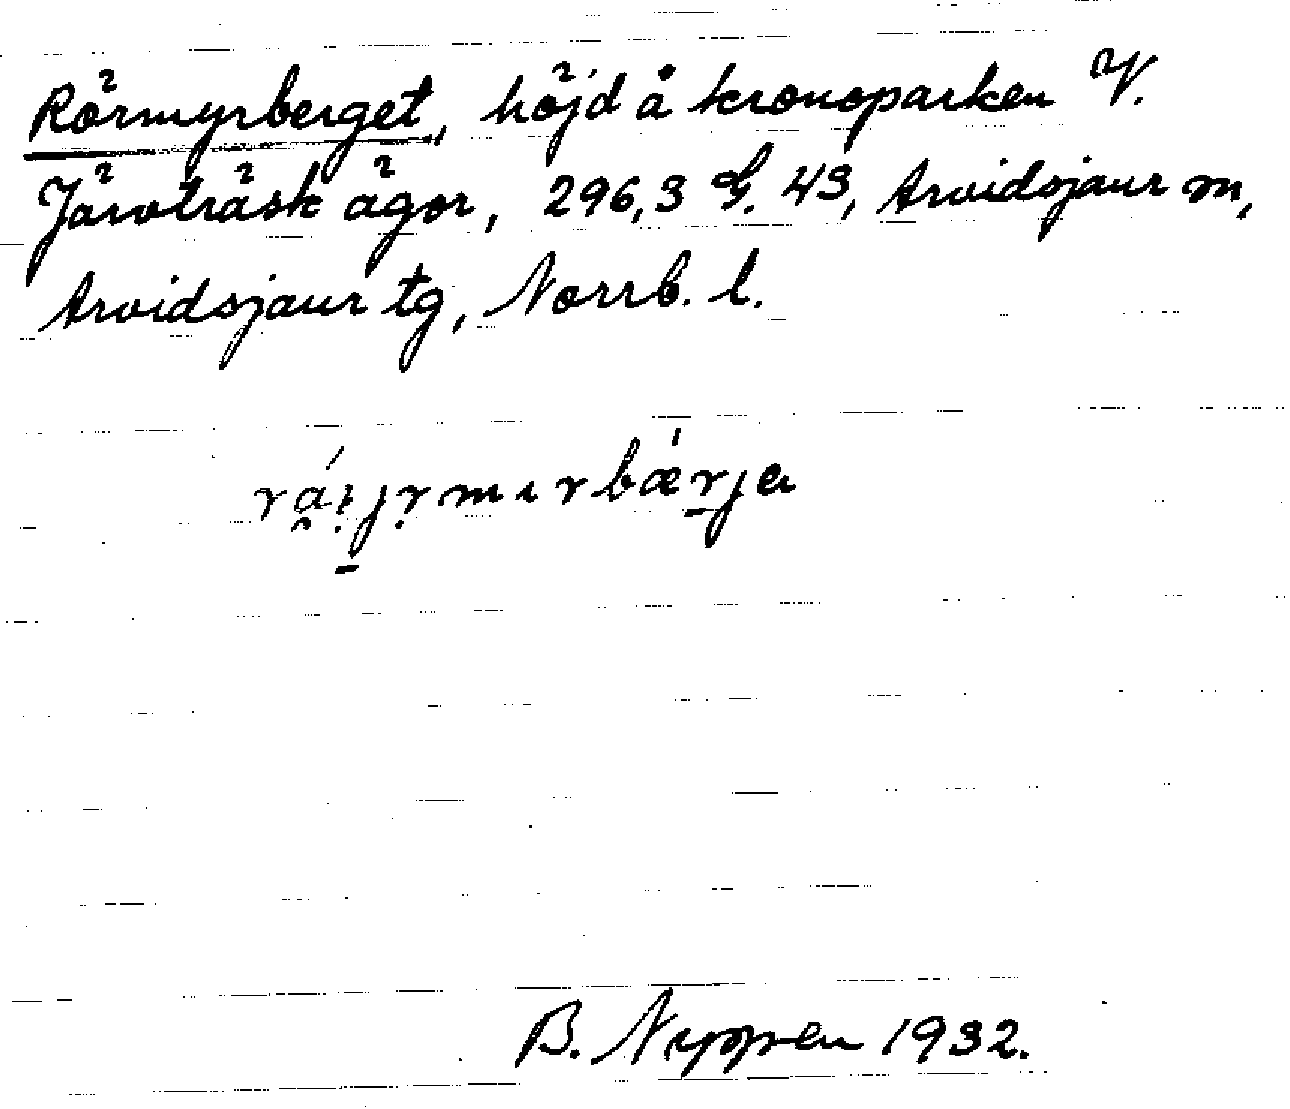 Rörmyrberget, höjd å kronoparken V.
Järvträsk ägor, 296,3 G. 43, Arvidsjaur sn,
Arvidsjaur tg, Norrb. l.
B. Nyppen 1932.